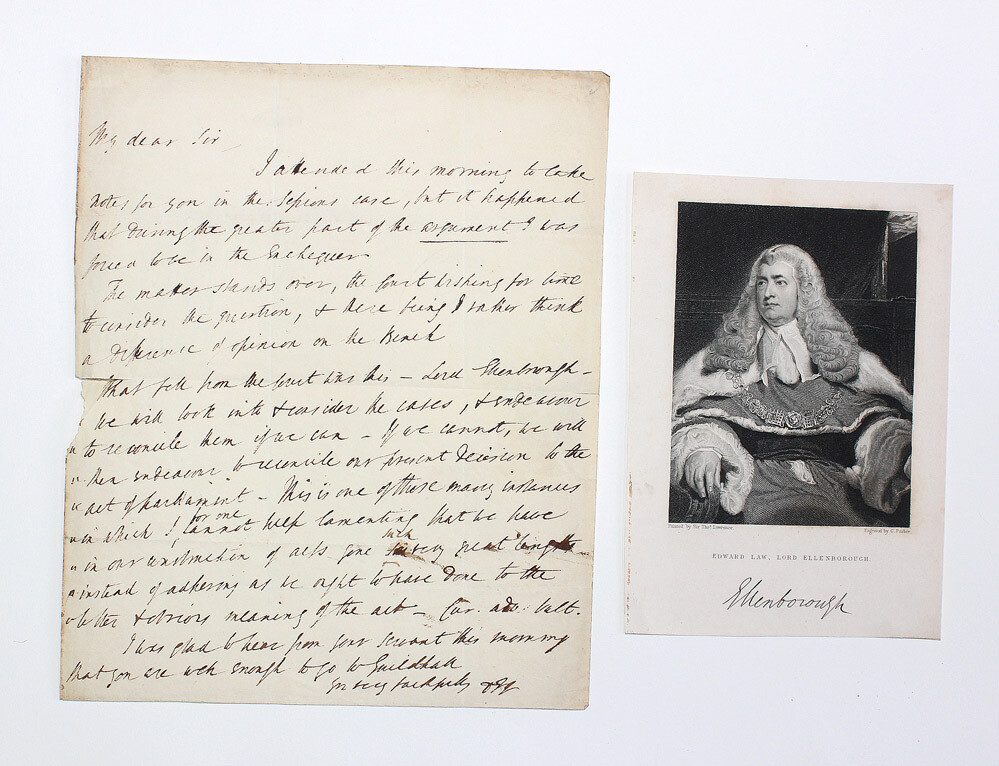 My dear Sir
I attended this morning to take
notes for you in the Sessions case, but it happened
that during the greater part of the argument I was
forced to be in the Exchequer
The matter stands over, the Court wishing for time
to consider the question, & there being I rather think
a difference of opinion on the Bench
What fell from the Court was this – Lord Ellenborough –
" we will look into & consider the cases, & endeavour
" to reconcile them if we can – If we cannot, we will
" then endeavour to reconcile our present decision to the
" act of parliament – This is one of those many instances
" in which I, for one cannot help lamenting that we have
" in our construction of acts gone such very great lengths
" instead of adhering as we ought to have done to the
" letter & obvious meaning of the act – Cur. adv. vult.
I was glad to hear from your servant this morning
that you are well enough to go to Guildhall
yrs very faithfully
Painted by Sir Thos. Lawrence.
Engraved by
EDWARD LAW, LORD ELLENBOROUGH.
Ellenborough